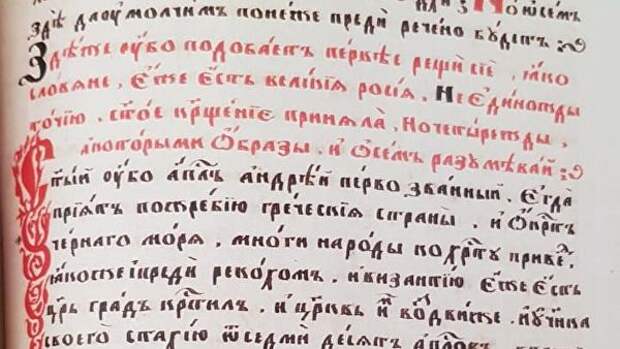 здѣ да оумолчим понеже преди речено будетъ
Здѣже оубо подобаетъ первѣе рещи сїе, ꙗко
словяне, Еже Есть великїя росїя, Не Единожды
точїю, с҃тое кр҃щенїе приняла, Но четырежды,
а которыми Образы, и Осемъ разумѣвай
С҃тый оубо ап҃лъ андрѣй первозванный, Егда
прїятъ по жребїю греческїя страны, и Окр҃тъ
чернаго моря, многи народы ко хр҃ту приве,
ꙗкоже ꙗпреди рекохом, и византїю Еже Есть
цр҃ь градъ кр҃тил, и цр҃ковь воздвиже, и оучн҃ка
своего стахїю ѿ седми десятъ ап҃лов,